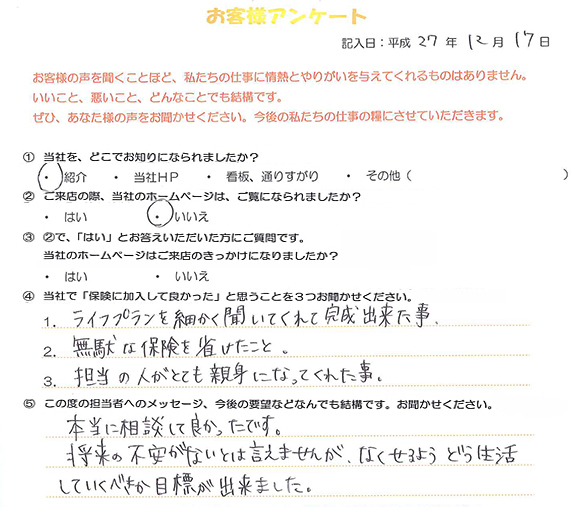 お客様アンケート
記入日：平成 27 年 12 月 17 日
お客様の声を聞くことほど、私たちの仕事に情熱とやりがいを与えてくれるものはありません。
いいこと、悪いこと、どんなことでも結構です。
ぜひ、あなた様の声をお聞かせください。今後の私たちの仕事の糧にさせていただきます。
① 当社を、どこでお知りになられましたか？
・ 紹介 ・ 当社ＨＰ ・ 看板、通りすがり ・ その他（ ）
② ご来店の際、当社のホームページは、ご覧になられましたか？
・ はい ・ いいえ
③ ②で、「はい」とお答えいただいた方にご質問です。
当社のホームページはご来店のきっかけになりましたか？
・ はい ・ いいえ
④ 当社で「保険に加入して良かった」と思うことを３つお聞かせください。
1. ライフプランを細かく聞いてくれて完成出来た事、
2. 無駄な保険を省けたこと。
3. 担当の人がとても親身になってくれた事。
⑤ この度の担当者へのメッセージ、今後の要望などなんでも結構です。お聞かせください。
本当に相談して良かったです。
将来の不安がないとは言えませんが、なくせるようどう生活
していくべきか目標が出来ました。